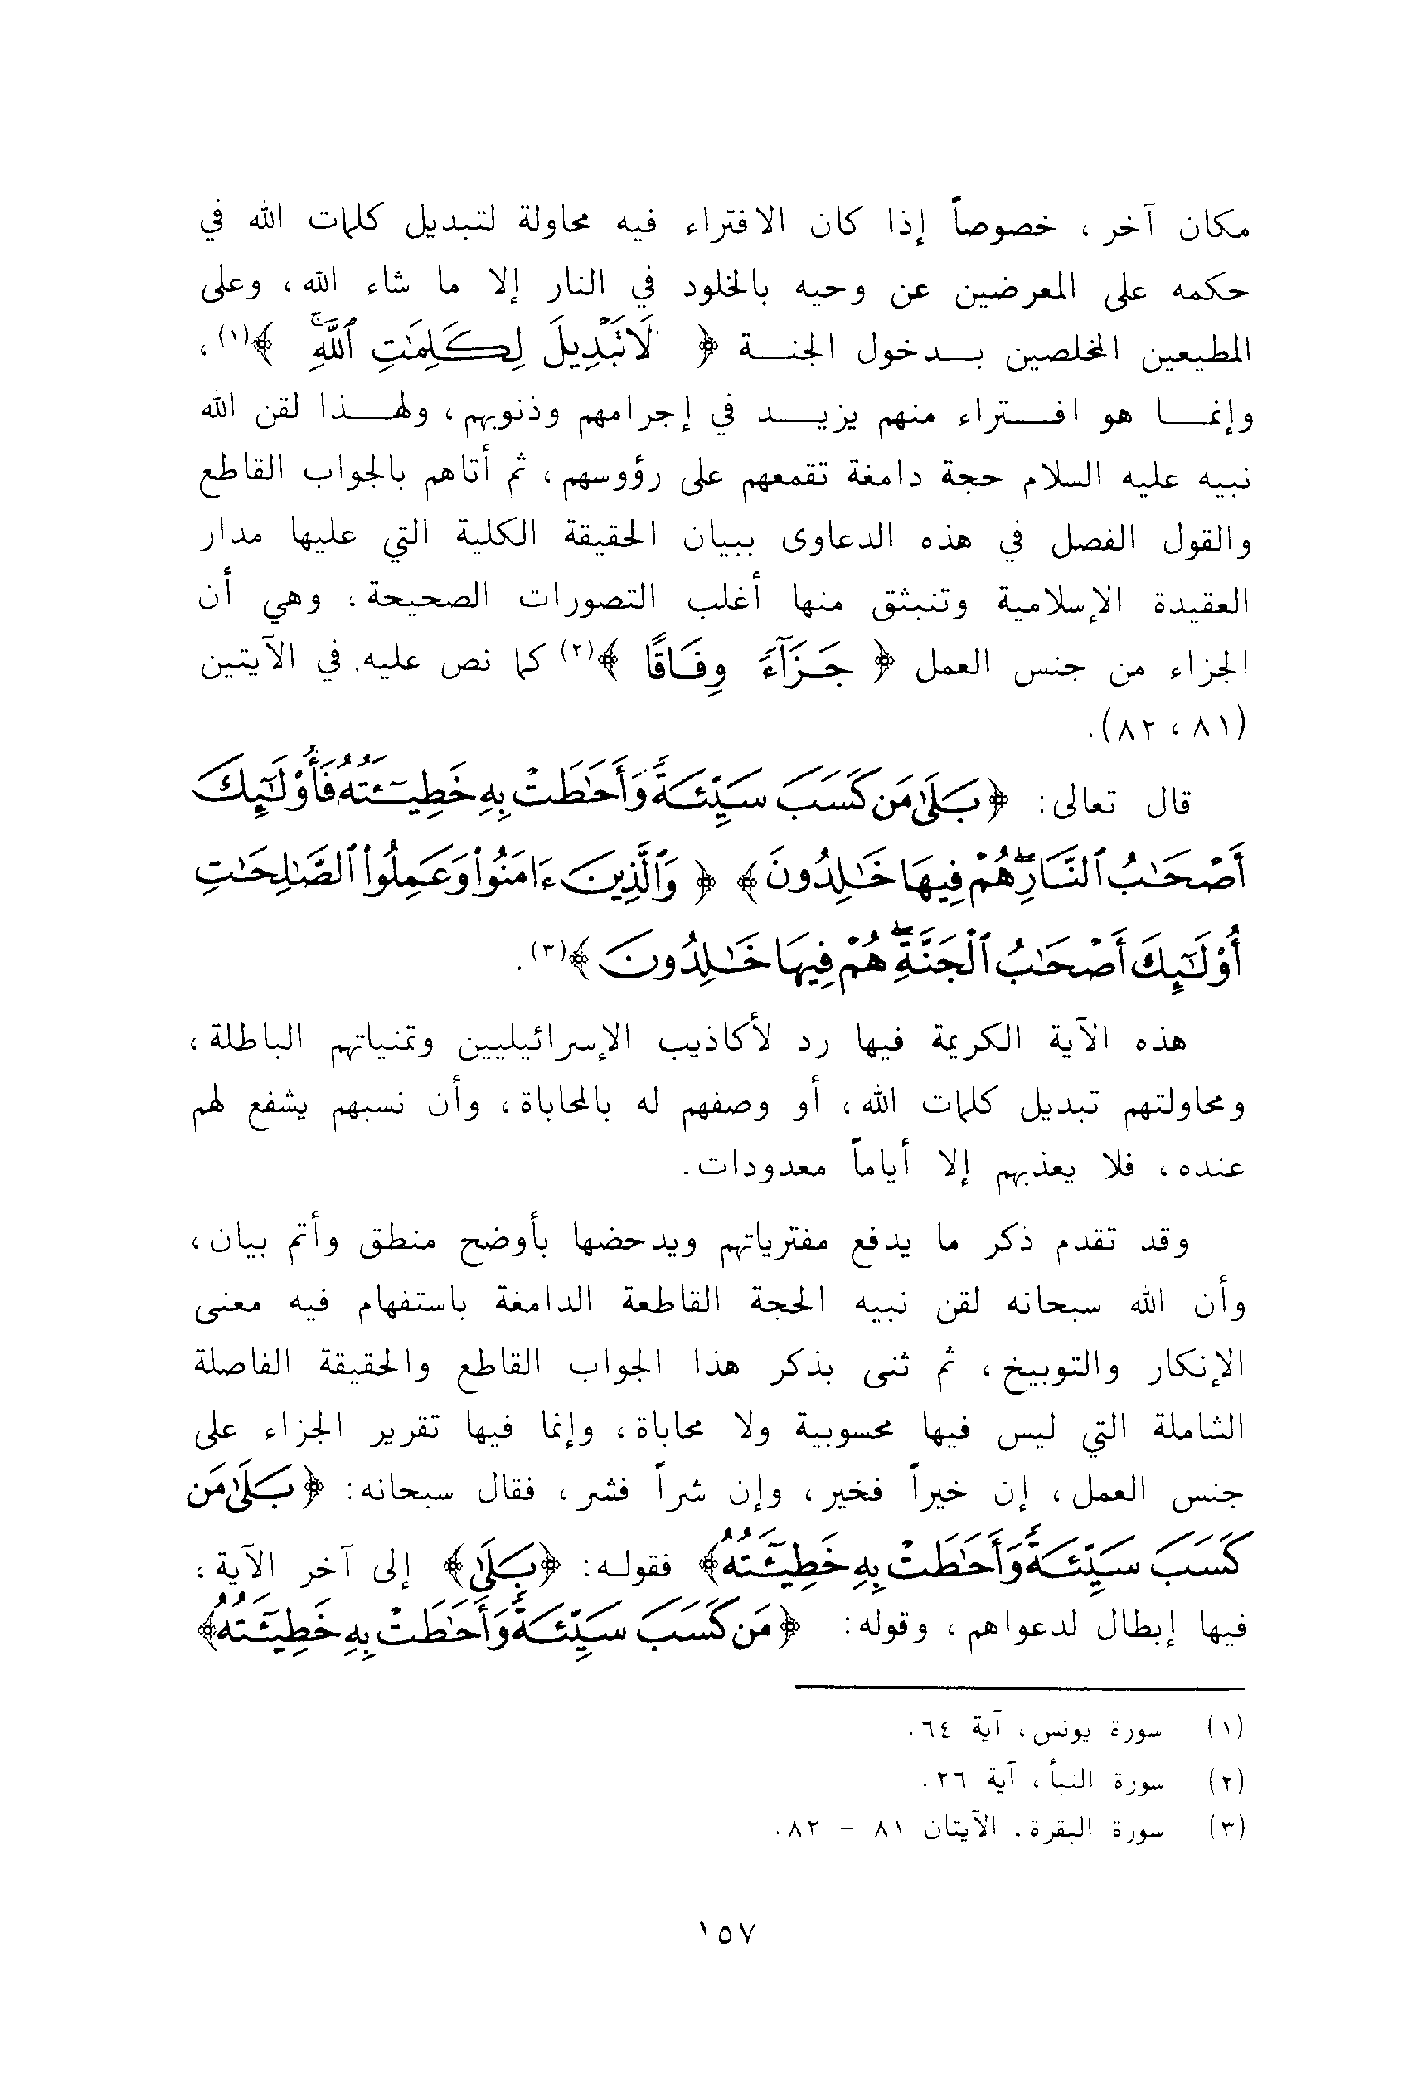 مكان آخر ، خصوصاً إذا كان الافتراء فيه محاولة لتبديل كلمات الله في
حكمه على المعرضين عن وحيه بالخلود في النار إلا ما شاء الله ، وعلى
المطيعين المخلصين بـدخول الجنـة ﴿ لَا تَبْدِيلَ لِكَلِمَٰتِ ٱللَّهِۚ ﴾(١) ،
وإنمـا هو افـتراء منهم يزيـد في إجرامهم وذنوبهم ، ولهـذا لقن الله
نبيه عليه السلام حجة دامغة تقمعهم على رؤوسهم ، ثم أتاهم بالجواب القاطع
والقول الفصل في هذه الدعاوى ببيان الحقيقة الكلية التي عليها مدار
العقيدة الإسلامية وتنبثق منها أغلب التصورات الصحيحة ، وهي أن
الجزاء من جنس العمل ﴿ جَزَآءً وِفَاقًا ﴾(٢) كما نص عليه في الآيتين
(٨١ ، ٨٢).
قال تعالى: ﴿ بَلَىٰ مَن كَسَبَ سَيِّئَةً وَأَحَٰطَتْ بِهِۦ خَطِيٓـَٔتُهُۥ فَأُو۟لَٰٓئِكَ
أَصْحَٰبُ ٱلنَّارِۖ هُمْ فِيهَا خَٰلِدُونَ ﴾ ﴿ وَٱلَّذِينَ ءَامَنُوا۟ وَعَمِلُوا۟ ٱلصَّٰلِحَٰتِ
أُو۟لَٰٓئِكَ أَصْحَٰبُ ٱلْجَنَّةِۖ هُمْ فِيهَا خَٰلِدُونَ ﴾(٣).
هذه الآية الكريمة فيها رد لأكاذيب الإسرائيليين وتمنياتهم الباطلة ،
ومحاولتهم تبديل كلمات الله ، أو وصفهم له بالمحاباة ، وأن نسبهم يشفع لهم
عنده ، فلا يعذبهم إلا أياماً معدودات.
وقد تقدم ذكر ما يدفع مفترياتهم ويدحضها بأوضح منطق وأتم بيان ،
وأن الله سبحانه لقن نبيه الحجة القاطعة الدامغة باستفهام فيه معنى
الإنكار والتوبيخ ، ثم ثنى بذكر هذا الجواب القاطع والحقيقة الفاصلة
الشاملة التي ليس فيها محسوبية ولا محاباة ، وإنما فيها تقرير الجزاء على
جنس العمل ، إن خيراً فخير ، وإن شراً فشر ، فقال سبحانه: ﴿ بَلَىٰ مَن
كَسَبَ سَيِّئَةً وَأَحَٰطَتْ بِهِۦ خَطِيٓـَٔتُهُۥ ﴾ فقولـه: ﴿ بَلَىٰ ﴾ إلى آخر الآية ،
فيها إبطال لدعواهم ، وقوله: ﴿ مَن كَسَبَ سَيِّئَةً وَأَحَٰطَتْ بِهِۦ خَطِيٓـَٔتُهُۥ ﴾
(١) سورة يونس ، آية ٦٤.
(٢) سورة النبأ ، آية ٢٦.
(٣) سورة البقرة. الآيتان ٨١ – ٨٢.
١٥٧